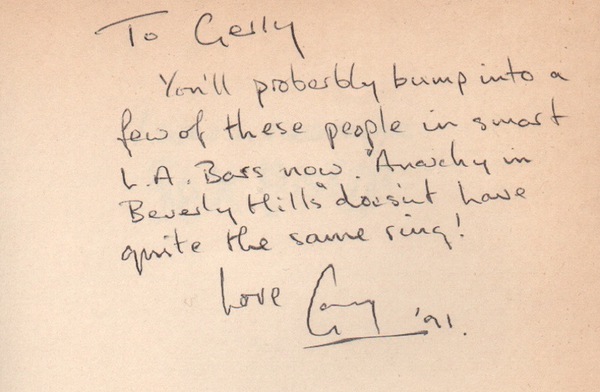 To Gerly
You'll proberbly bump into a
few of these people in smart
L.A. Bars now. "Anarchy in
Beverly Hills" doesn't have
quite the same ring!
Love
'91.